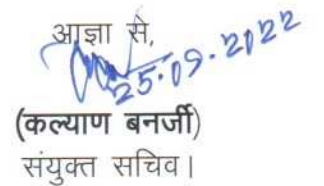 आज्ञा से,
25.09.2022
(कल्याण बनर्जी)
संयुक्त सचिव।